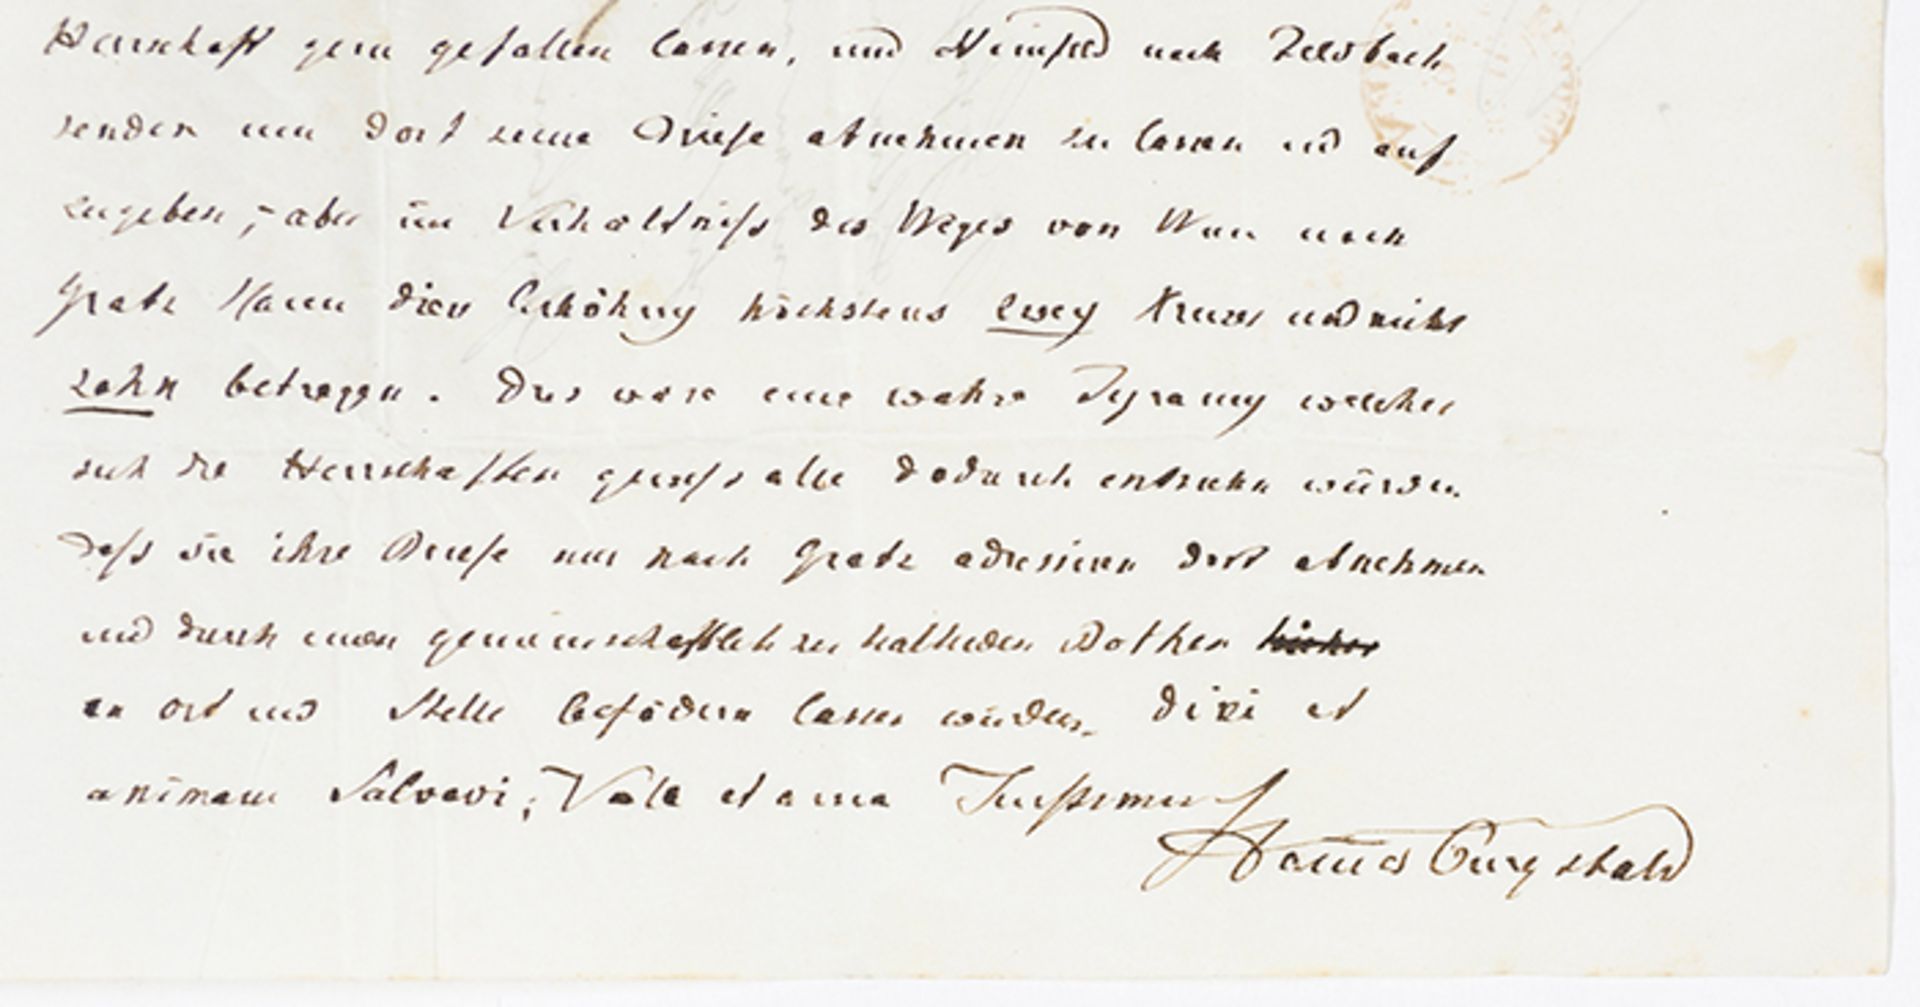 Herrschaft gern gefallen lassen, und Hainfeld nach Feldbach
senden um dort seine Briefe abnehmen zu lassen und auf
zugeben, – aber im Verhältniss des Weges von Wien nach
Gratz kann diese Erhöhung höchstens zwey Kreuzer und nicht
zehn betragen. Dies wäre eine wahre Tyranny welcher
sich die Herrschaften gewiss alle dadurch entziehn würden
dass sie ihre Briefe nur nach Gratz adressiren dort abnehmen
und durch einen gemeinschaftlich zu haltenden Bothen hieher
an ort und Stelle befödern lassen würden. Dixi et
animam Salvavi; Vale et ama Tuissimum
Hammer Purgstall